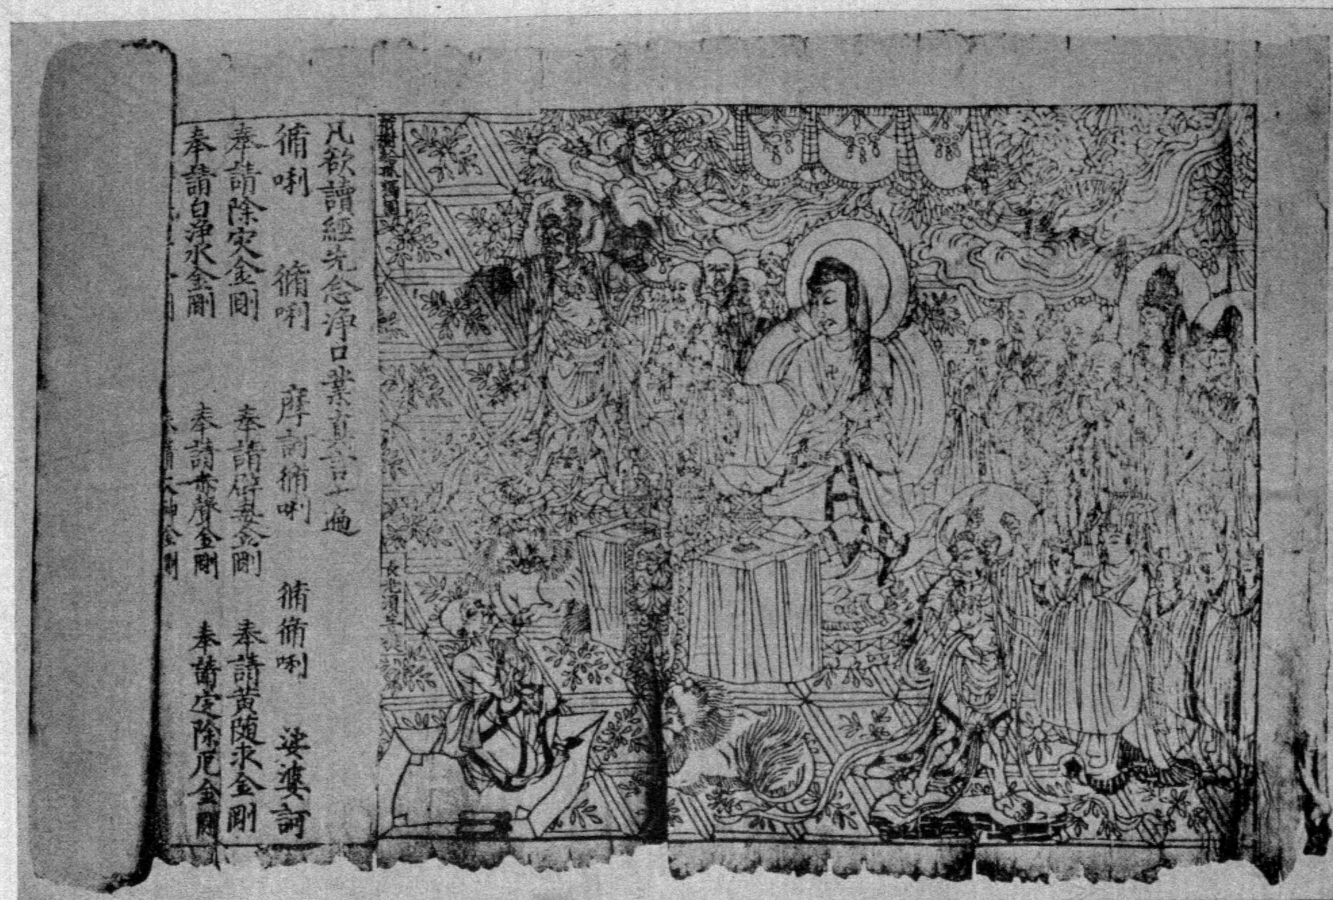 祇樹給孤獨園
長老須菩提
凡欲讀經先念浄口業真言一遍
脩唎 脩唎 摩訶脩唎 脩脩唎 娑婆訶
奉請除灾金剛 奉請辟毒金剛 奉請黄随求金剛
奉請白浄水金剛 奉請赤聲金剛 奉請定除厄金剛
奉請大神金剛